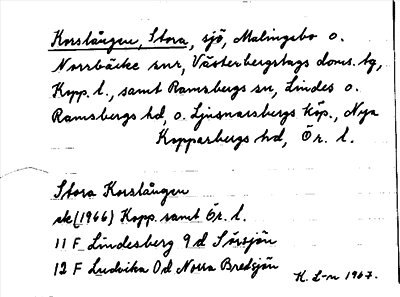 Korslången, Stora, sjö, Malingsbo o.
Norrbäcke snr, Västerbergslags doms. tg,
Kopp. l., samt Ramsbergs sn, Lindes o.
Ramsbergs hd, o. Ljusnarsbergs köp., Nya
Kopparbergs hd, Ör. l.
Stora Korslången
ek (1966) Kopp. samt Ör. l.
11 F Lindesberg 9 d Sörsjön
12 F Ludvika 0 d Norra Bredsjön
K. L-n 1967.